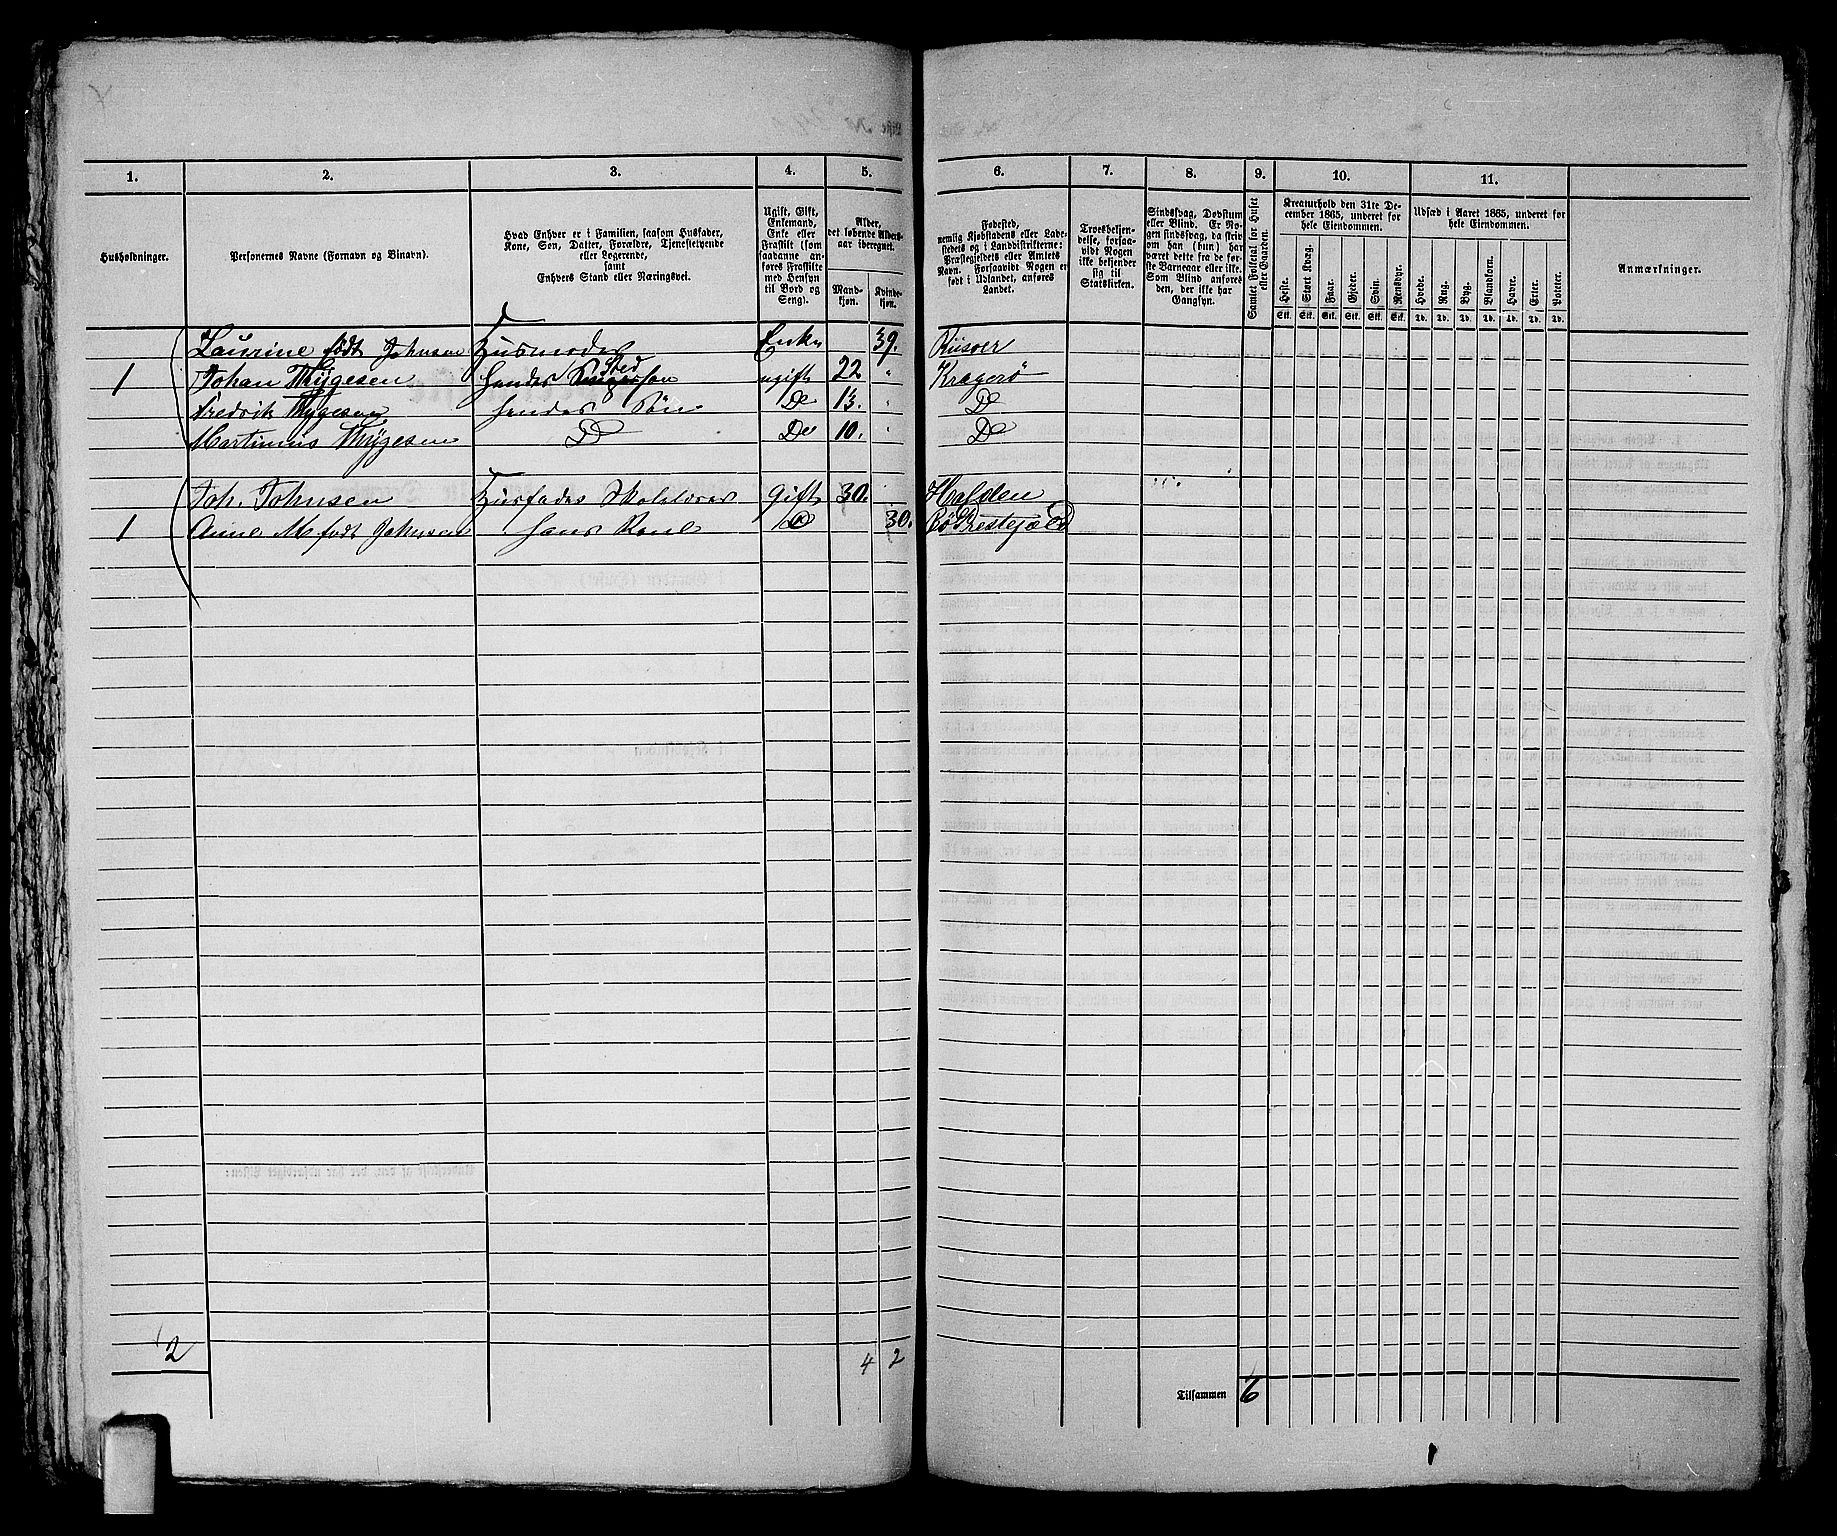 1. 2. 3. 4. 5. 6. 7. 8. 9. 10. 11.
Husholdninger.
Personernes Navne (Fornavn og Binavn).
Hvad Enhver er i Familien, saasom Husfader,
Kone, Søn, Datter, Forældre, Tjenestetyende
eller Logerende,
samt
Enhvers Stand eller Næringsvei.
Ugift, Gift,
Enkemand,
Enke eller
Fraskilt (som
saadanne an-
føres Fraskilte
med Hensyn
til Bord og
Seng).
Alder,
det løbende Alders-
aar iberegnet.
Mand-
kjøn.
Kvinde-
kjøn.
Fødested,
nemlig Kjøbstadens eller Lade-
stedets og i Landdistrikterne:
Præstegjeldets eller Amtets
Navn. Forsaavidt Nogen er
født i Udlandet, anføres
Landet.
Troesbekjen-
delse, forsaa-
vidt Nogen
ikke bekjender
sig til
Statskirken.
Sindssvag, Døvstum
eller Blind. Er No-
gen sindssvag, da skriv
om han (hun) har
været dette fra de før-
ste Barneaar eller ikke.
Som Blind anføres
den, der ikke har
Gangsyn.
Samlet Folketal for Huset
eller Gaarden.
Kreaturhold den 31te De-
cember 1865, underet for
hele Eiendommen.
Heste. Stort Kvæg. Faar. Gjeder. Svin. Rensdyr.
Stk. Stk. Stk. Stk. Stk. Stk.
Udsæd i Aaret 1865, underet for
hele Eiendommen.
Hvede. Rug. Byg. Blandkorn. Havre. Erter. Poteter.
Td. Td. Td. Td. Td. Td. Td.
Anmærkninger.
Laurine født Johnsen Husmoder Enke 39. Riisøer
1 Johan Thygesen hendes Stedsøn ugift 22 " Kragerø
Fredrik Thygesen hendes Søn Do 13. " Do
Martinius Thygesen Do Do 10. " Do
Joh. Johnsen Husfader Skolelærer Gift 30. Halden
1 Anne M født Johnsen hans Kone Do 30. Bø Prestejæld
2 4 2
Tilsammen 6